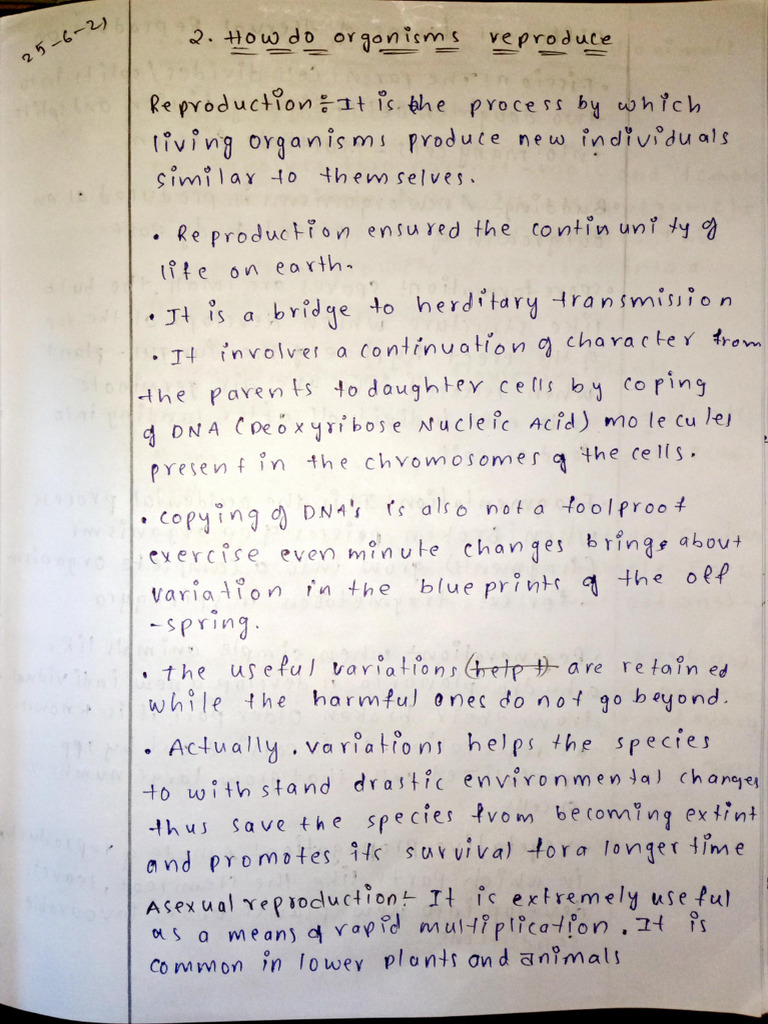 25-6-21
2. How do organisms reproduce
Reproduction:- It is the process by which
living organisms produce new individuals
similar to themselves.
• Reproduction ensured the continunity of
life on earth.
• It is a bridge to herditary transmission
• It involves a continuation of character from
the parents to daughter cells by coping
of DNA (Deoxyribose Nucleic Acid) molecules
present in the chromosomes of the cells.
• copying of DNA's is also not a foolproof
exercise even minute changes brings about
variation in the blueprints of the off
-spring.
• the useful variations (help t) are retained
while the harmful ones do not go beyond.
• Actually. variations helps the species
to withstand drastic environmental changes
thus save the species from becoming extint
and promotes its survival for a longer time
Asexual reproduction:- It is extremely useful
as a means of rapid multiplication. It is
common in lower plants and animals